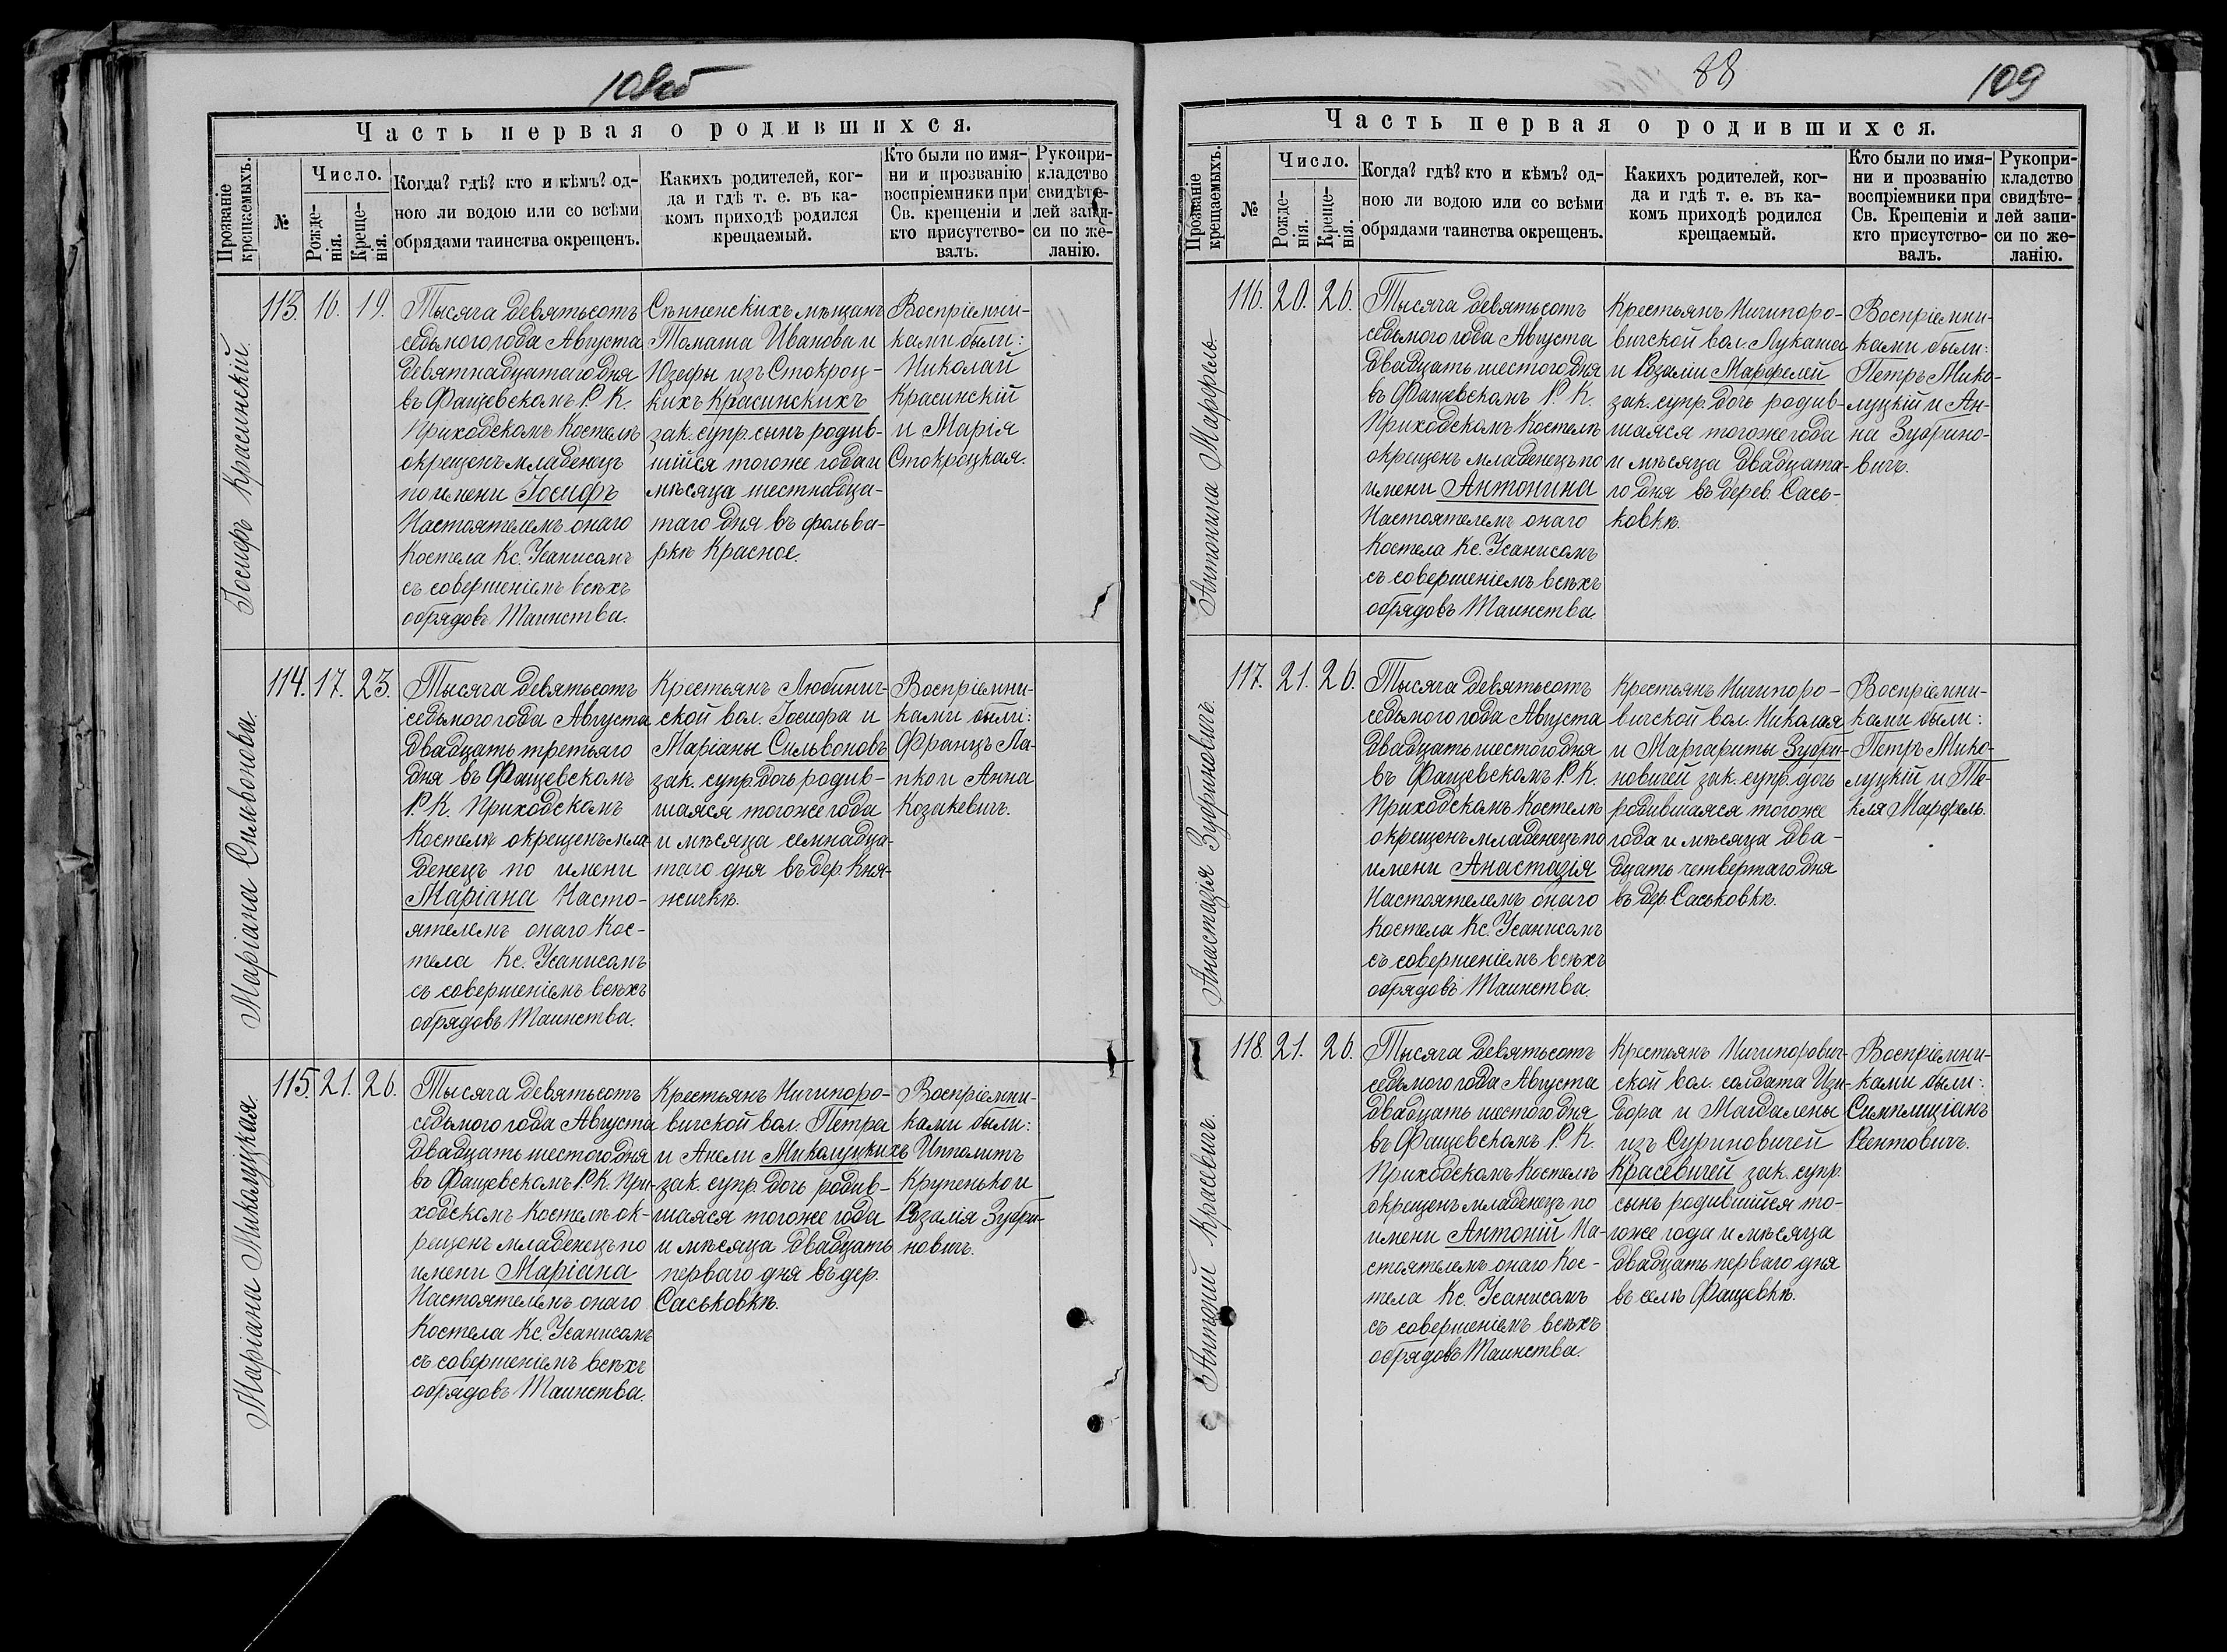 108об
Часть первая о родившихся.
Прозваніе крещаемыхъ.
№
Число.
Рожде-
нія.
Креще-
нія.
Когда? гдѣ? кто и кѣмъ? од-
ною ли водою или со всѣми
обрядами таинства окрещенъ.
Какихъ родителей, ког-
да и гдѣ т. е. въ ка-
комъ приходѣ родился
крещаемый.
Кто были по имя-
ни и прозванію
воспріемники при
Св. крещеніи и
кто присутство-
валъ.
Рукопри-
кладство
свидѣте-
лей запи-
си по же-
ланію.
Іосифъ Красинскій.
113. 16. 19.
Тысяча девятьсотъ
седьмого года Августа
девятнадцатаго дня
въ Фащевскомъ Р. К.
Приходскомъ Костелѣ
окрещенъ младенецъ
по имени Іосифъ
Настоятелемъ онаго
Костела Кс. Усанисомъ
съ совершеніемъ всѣхъ
обрядовъ Таинства.
Сѣнненскихъ мѣщанъ
Томаша Иванова и
Юзефы изъ Стокроц-
кихъ Красинскихъ
зак. супр. сынъ родив-
шійся тогоже года и
мѣсяца шестнадца-
таго дня въ фольва-
ркѣ Красное.
Воспріемни-
ками были:
Николай
Красинскій
и Марія
Стокроцкая.
Маріана Сильвонова.
114. 17. 23.
Тысяча девятьсотъ
седьмого года Августа
двадцать третьяго
дня въ Фащевскомъ
Р. К. Приходскомъ
Костелѣ окрещенъ мла-
денецъ по имени
Маріана Насто-
ятелемъ онаго Кос-
тела Кс. Усанисомъ
съ совершеніемъ всѣхъ
обрядовъ Таинства.
Крестьянъ Любинич-
ской вол. Іосифа и
Маріаны Сильвоновъ
зак. супр. дочь родив-
шаяся тогоже года
и мѣсяца семнадца-
таго дня въ дер. Кня-
жичкѣ.
Воспріемни-
ками были:
Францъ Ла-
пко и Анна
Козакевичъ.
Маріана Миколуцкая.
115. 21. 26.
Тысяча девятьсотъ
седьмого года Августа
двадцать шестого дня
въ Фащевскомъ Р. К. При-
ходскомъ Костелѣ ок-
рещенъ младенецъ по
имени Маріана
Настоятелемъ онаго
Костела Кс. Усанисомъ
съ совершеніемъ всѣхъ
обрядовъ Таинства.
Крестьянъ Ничипоро-
вичской вол. Петра
и Анели Миколуцкихъ
зак. супр. дочь родив-
шаяся тогоже года
и мѣсяца двадцать
перваго дня въ дер.
Саськовкѣ.
Воспріемни-
ками были:
Ипполитъ
Крупенько и
Розалія Зубри-
новичъ.
88
109
Часть первая о родившихся.
Прозваніе крещаемыхъ.
№
Число.
Рожде-
нія.
Креще-
нія.
Когда? гдѣ? кто и кѣмъ? од-
ною ли водою или со всѣми
обрядами таинства окрещенъ.
Какихъ родителей, ког-
да и гдѣ т. е. въ ка-
комъ приходѣ родился
крещаемый.
Кто были по имя-
ни и прозванію
воспріемники при
Св. Крещеніи и
кто присутство-
валъ.
Рукопри-
кладство
свидѣте-
лей запи-
си по же-
ланію.
Антонина Марфель.
116. 20. 26.
Тысяча девятьсотъ
седьмого года Августа
двадцать шестого дня
въ Фащевскомъ Р. К.
Приходскомъ Костелѣ
окрещенъ младенецъ по
имени Антонина
Настоятелемъ онаго
Костела Кс. Усанисомъ
съ совершеніемъ всѣхъ
обрядовъ Таинства.
Крестьянъ Ничипоро-
вичской вол. Лукаша
и Розаліи Марфелей
зак. супр. дочь родив-
шаяся тогоже года
и мѣсяца двадцата-
го дня въ дерев. Сась-
ковкѣ.
Воспріемни-
ками были:
Петръ Мико-
луцкій и Ан-
на Зубрино-
вичъ.
Анастазія Зубриновичъ.
117. 21. 26.
Тысяча девятьсотъ
седьмого года Августа
двадцать шестого дня
въ Фащевскомъ Р. К.
Приходскомъ Костелѣ
окрещенъ младенецъ по
имени Анастазія
Настоятелемъ онаго
Костела Кс. Усанисомъ
съ совершеніемъ всѣхъ
обрядовъ Таинства.
Крестьянъ Ничипоро-
вичской вол. Николая
и Маргариты Зубри-
новичей зак. супр. дочь
родившаяся тогоже
года и мѣсяца два-
дцать четвертаго дня
въ дер. Саськовкѣ.
Воспріемни-
ками были:
Петръ Мико-
луцкій и Те-
кля Марфель.
Антоній Красевичъ.
118. 21. 26.
Тысяча девятьсотъ
седьмого года Августа
двадцать шестого дня
въ Фащевскомъ Р. К.
Приходскомъ Костелѣ
окрещенъ младенецъ по
имени Антоній На-
стоятелемъ онаго Кос-
тела Кс. Усанисомъ
съ совершеніемъ всѣхъ
обрядовъ Таинства.
Крестьянъ Ничипорович-
ской вол. солдата Изи-
дора и Магдалены
изъ Суриновичей
Красевичей зак. супр.
сынъ родившійся то-
гоже года и мѣсяца
двадцать перваго дня
въ селѣ Фащевкѣ.
Воспріемни-
ками были:
Симплиціанъ
Рентовичъ.